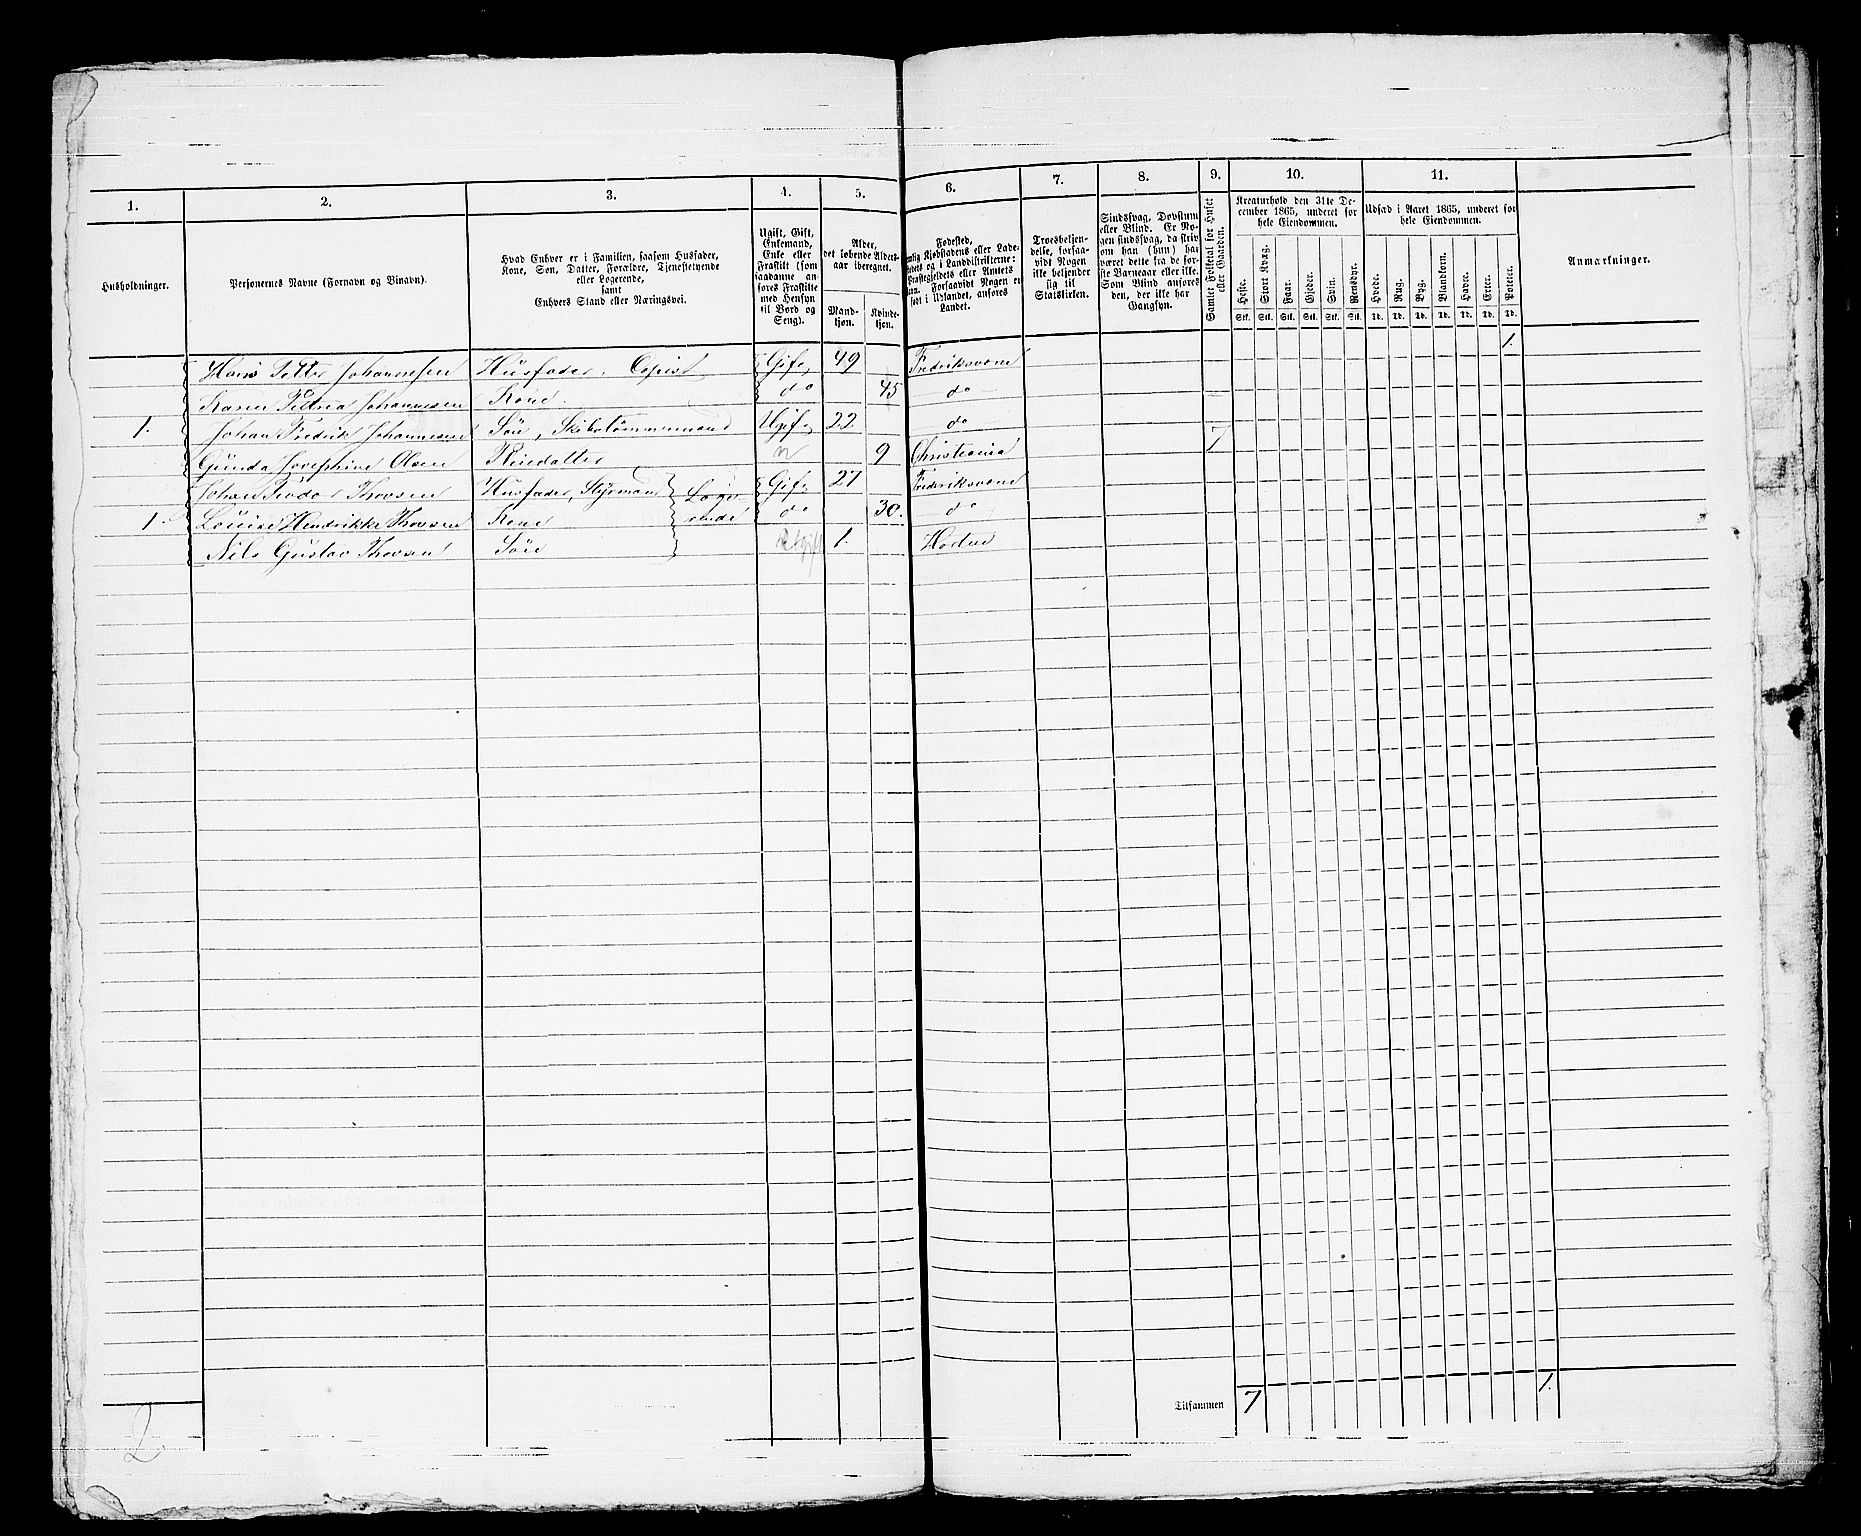 1. 2. 3. 4. 5. 6. 7. 8. 9. 10. 11.
Husholdninger.
Personernes Navne (Fornavn og Binavn).
Hvad Enhver er i Familien, saasom Husfader,
Kone, Søn, Datter, Forældre, Tjenestetyende
eller Logerende,
samt
Enhvers Stand eller Næringsvei.
Ugift, Gift,
Enkemand,
Enke eller
Fraskilt (som
saadanne an-
føres Fraskilte
med Hensyn
til Bord og
Seng).
Alder,
det løbende Alders-
aar iberegnet.
Mand-
kjøn.
Kvinde-
kjøn.
Fødested,
Kjøbstadens eller Lade-
stedets og i Landdistrikterne:
Præstegjeldets eller Amtets
Navn. Forsaavidt Nogen er
født i Udlandet, anføres
Landet.
Troesbekjen-
delse, forsaa-
vidt Nogen
ikke bekjender
sig til
Statskirken.
Sindssvag, Døvstum
eller Blind. Er No-
gen sindssvag, da skriv
om han (hun) har
været dette fra de før-
ste Barneaar eller ikke.
Som Blind anføres
den, der ikke har
Gangsyn.
Samlet Folketal for Huset
eller Gaarden.
Kreaturhold den 31te De-
cember 1865, underet for
hele Eiendommen.
Heste. Stort Kvæg. Faar. Gjeder. Svin. Rensdyr.
Stk. Stk. Stk. Stk. Stk. Stk.
Udsæd i Aaret 1865, underet for
hele Eiendommen.
Hvede. Rug. Byg. Blandkorn. Havre. Erter. Poteter.
Td. Td. Td. Td. Td. Td. Td.
Anmærkninger.
Hans Petter Johannesen Husfader, Copist Gift 49 Fredriksværn 1.
Karen Petrea Johannesen Kone. do 45 do
1. Johan Fredrik Johannesen Søn, Skibstømmermand Ugift 22 do 7
Gunda Josephine Olsen Pleiedatter 9 Christiania
Johan Thorsen Husfader, Styrmand Loge- Gift 27 Fredriksværn
1. Louise Hendrikke Thorsen Kone rende do 30. do
Nils Gustav Thorsen Søn Ugift 1. Horten
Tilsammen 7 1.
2